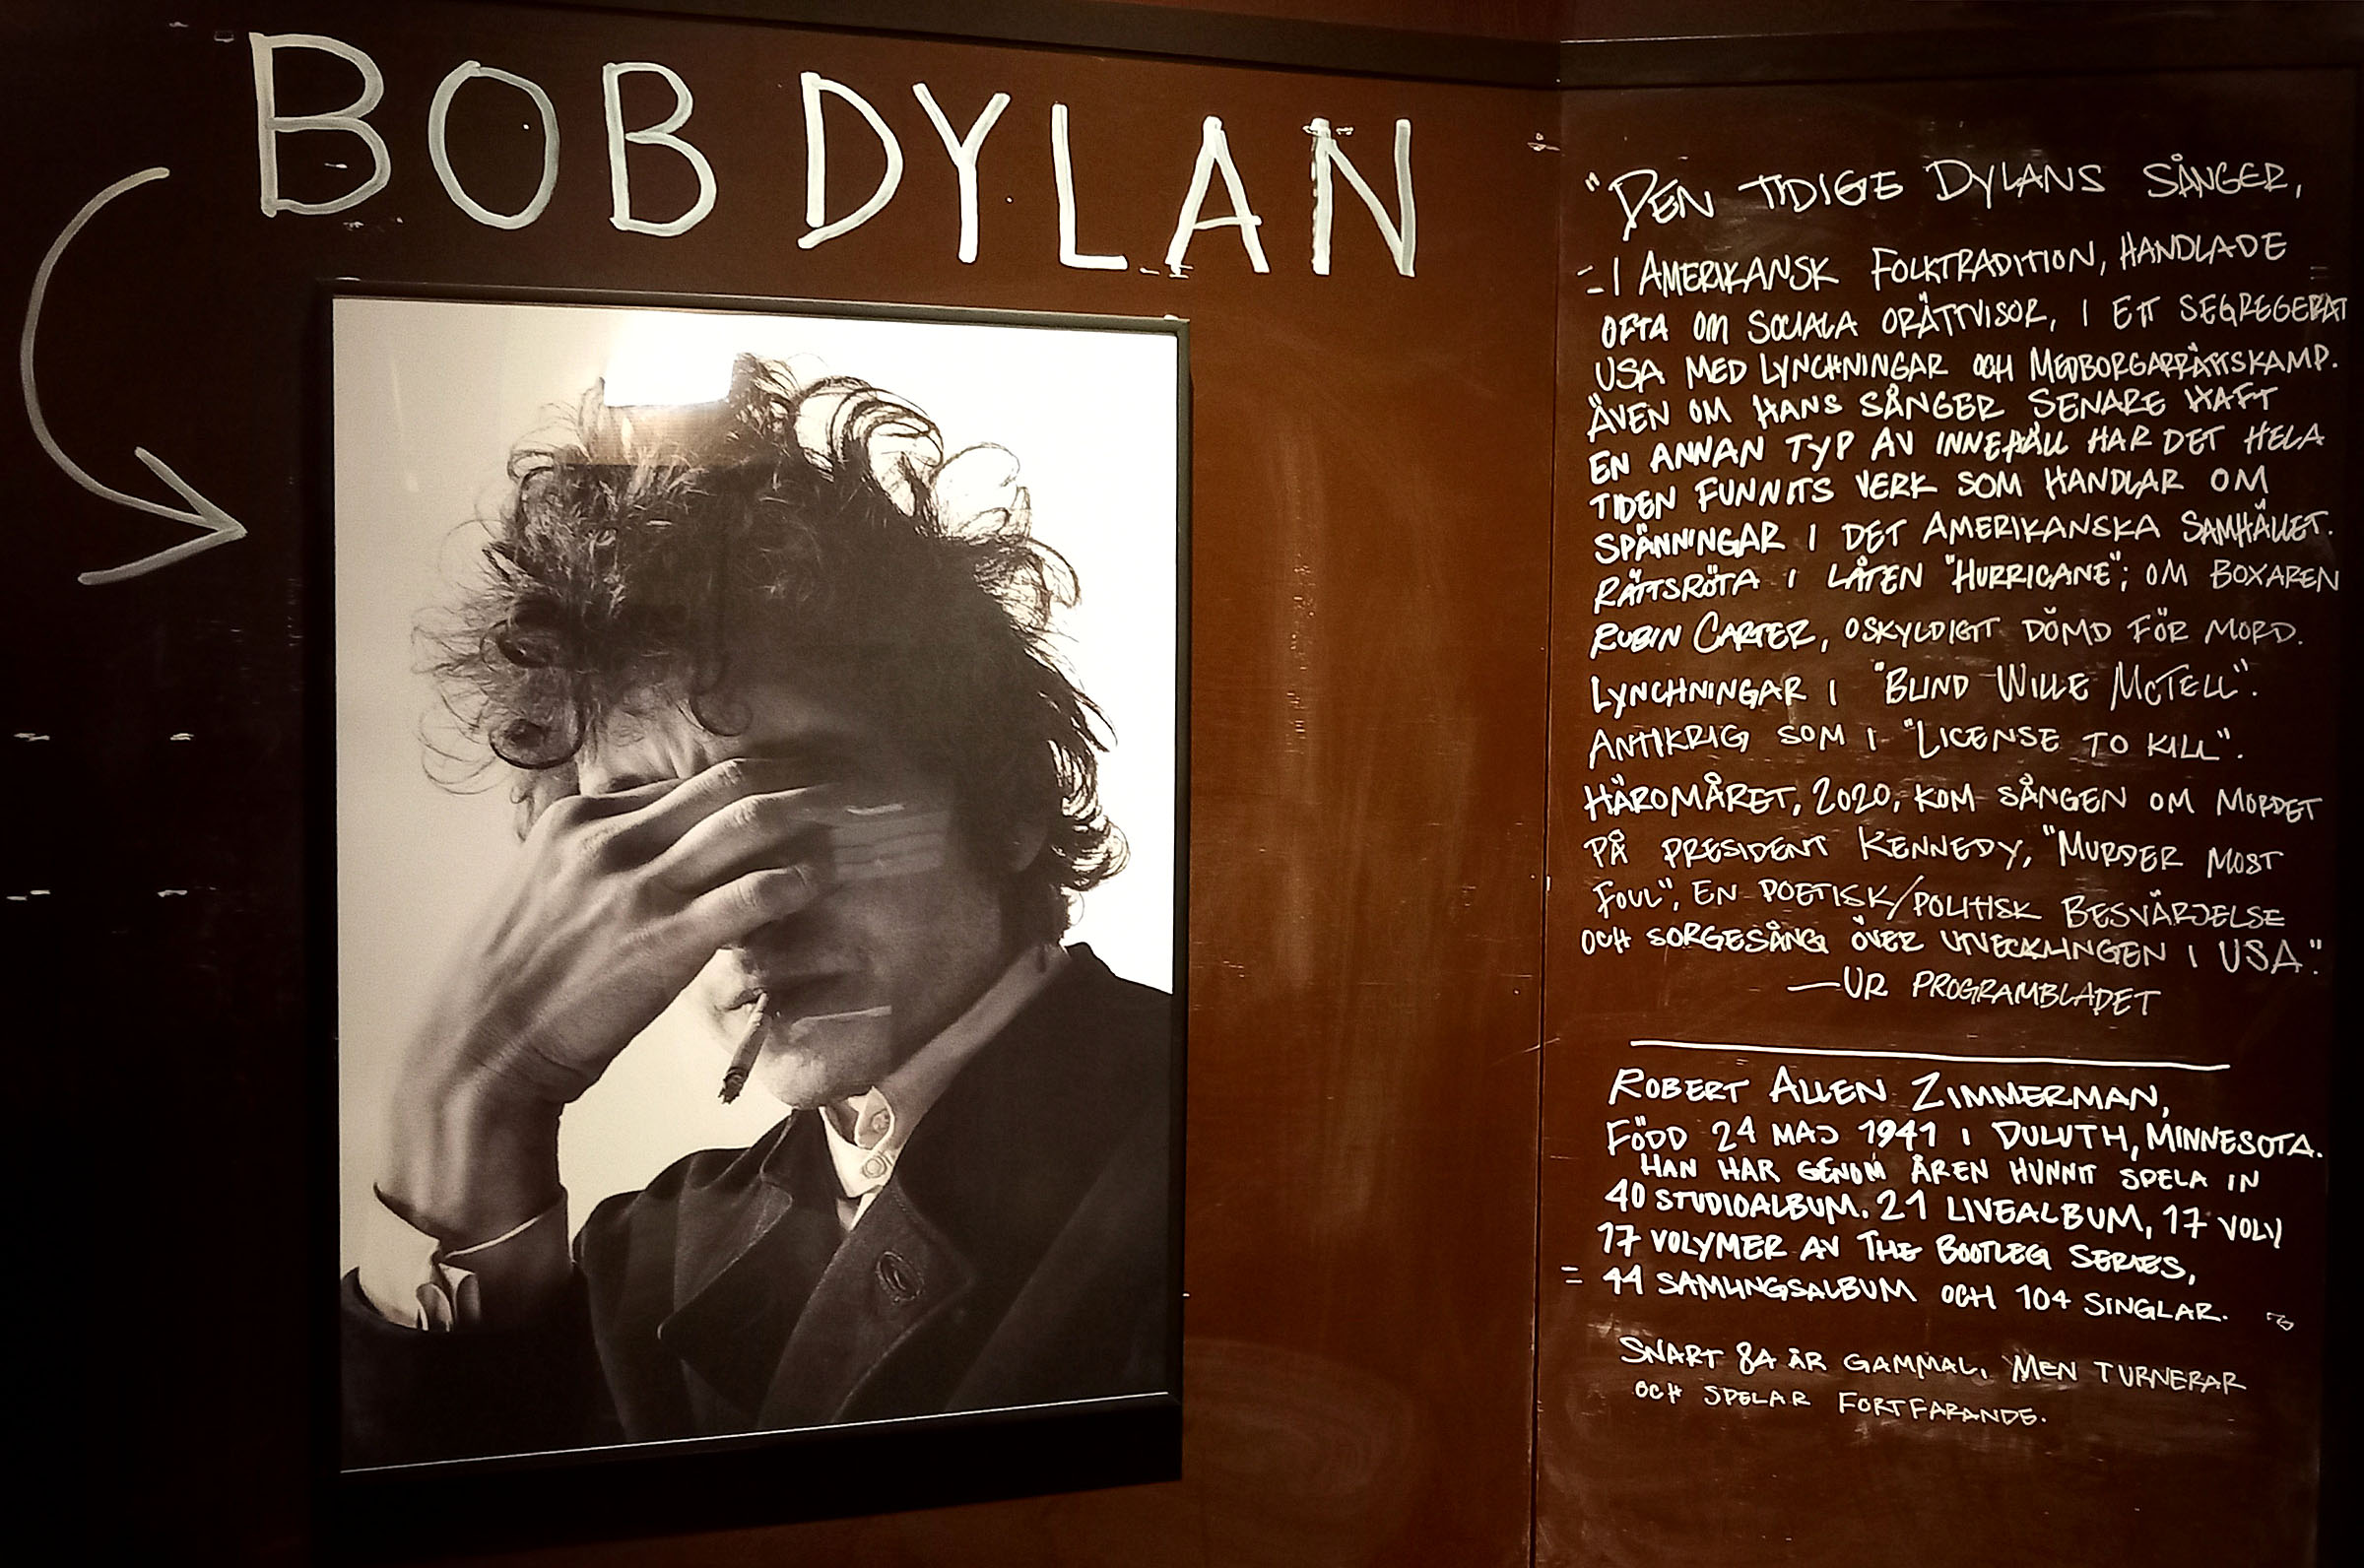 BOB DYLAN
"DEN TIDIGE DYLANS SÅNGER,
- I AMERIKANSK FOLKTRADITION, HANDLADE
OFTA OM SOCIALA ORÄTTVISOR, I ETT SEGREGERAT
USA MED LYNCHNINGAR OCH MEDBORGARRÄTTSKAMP.
ÄVEN OM HANS SÅNGER SENARE HAFT
EN ANNAN TYP AV INNEHÅLL HAR DET HELA
TIDEN FUNNITS VERK SOM HANDLAR OM
SPÄNNINGAR I DET AMERIKANSKA SAMHÄLLET.
RÄTTSRÖTA I LÅTEN "HURRICANE"; OM BOXAREN
RUBIN CARTER, OSKYLDIGT DÖMD FÖR MORD.
LYNCHNINGAR I "BLIND WILLE McTELL".
ANTIKRIG SOM I "LICENSE TO KILL".
HÄROMÅRET, 2020, KOM SÅNGEN OM MORDET
PÅ PRESIDENT KENNEDY, "MURDER MOST
FOUL", EN POETISK/POLITISK BESVÄRJELSE
OCH SORGESÅNG ÖVER UTVECKLINGEN I USA."
—UR PROGRAMBLADET
ROBERT ALLEN ZIMMERMAN,
FÖDD 24 MAJ 1941 I DULUTH, MINNESOTA.
HAN HAR GENOM ÅREN HUNNIT SPELA IN
40 STUDIOALBUM. 21 LIVEALBUM, 17 VOLY
17 VOLYMER AV THE BOOTLEG SERIES,
44 SAMLINGSALBUM OCH 104 SINGLAR.
SNART 84 ÅR GAMMAL, MEN TURNERAR
OCH SPELAR FORTFARANDE.